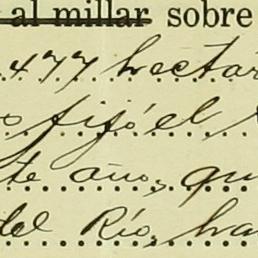 al millar sobre
477 hectár
s fijó el
te año, qu
del Río, ha